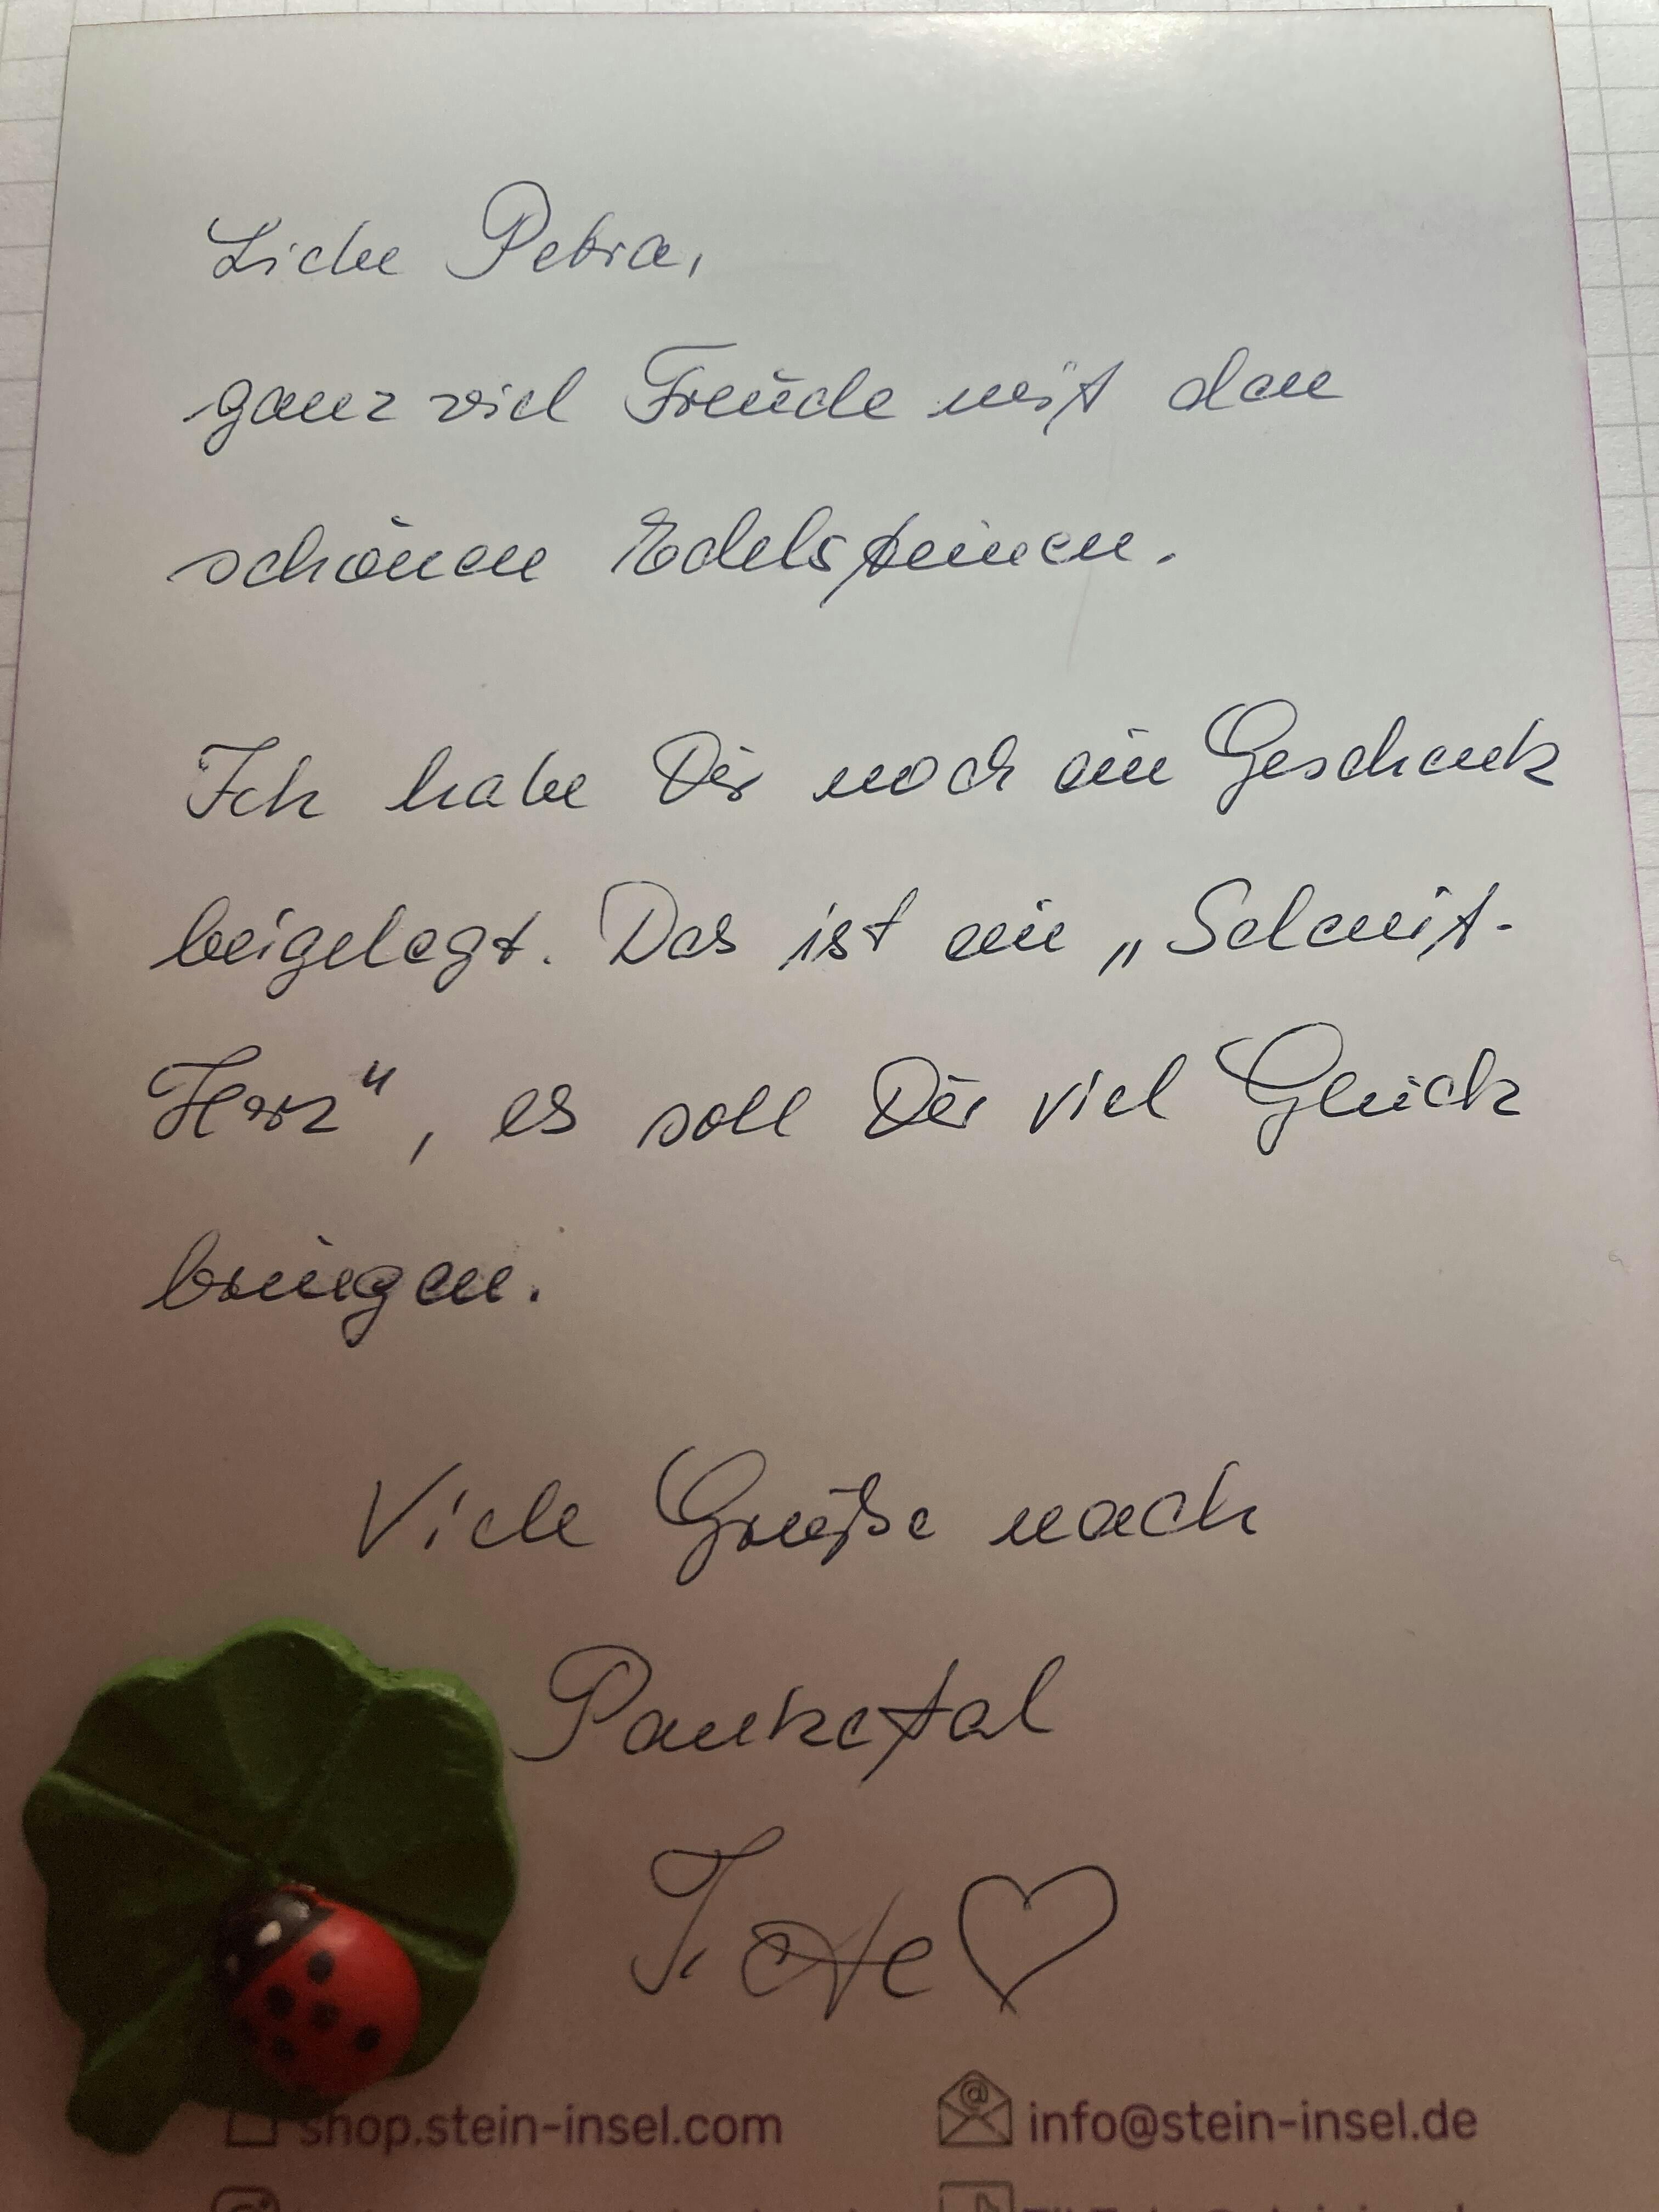 Liebe Petra,
ganz viel Freude mit den
schönen Edelsteinen.
Ich habe Dir noch ein Geschenk
beigelegt. Das ist ein „Selenit-
Herz“, es soll Dir viel Glück
bringen.
Viele Grüße nach
Panketal
shop.stein-insel.com
info@stein-insel.de